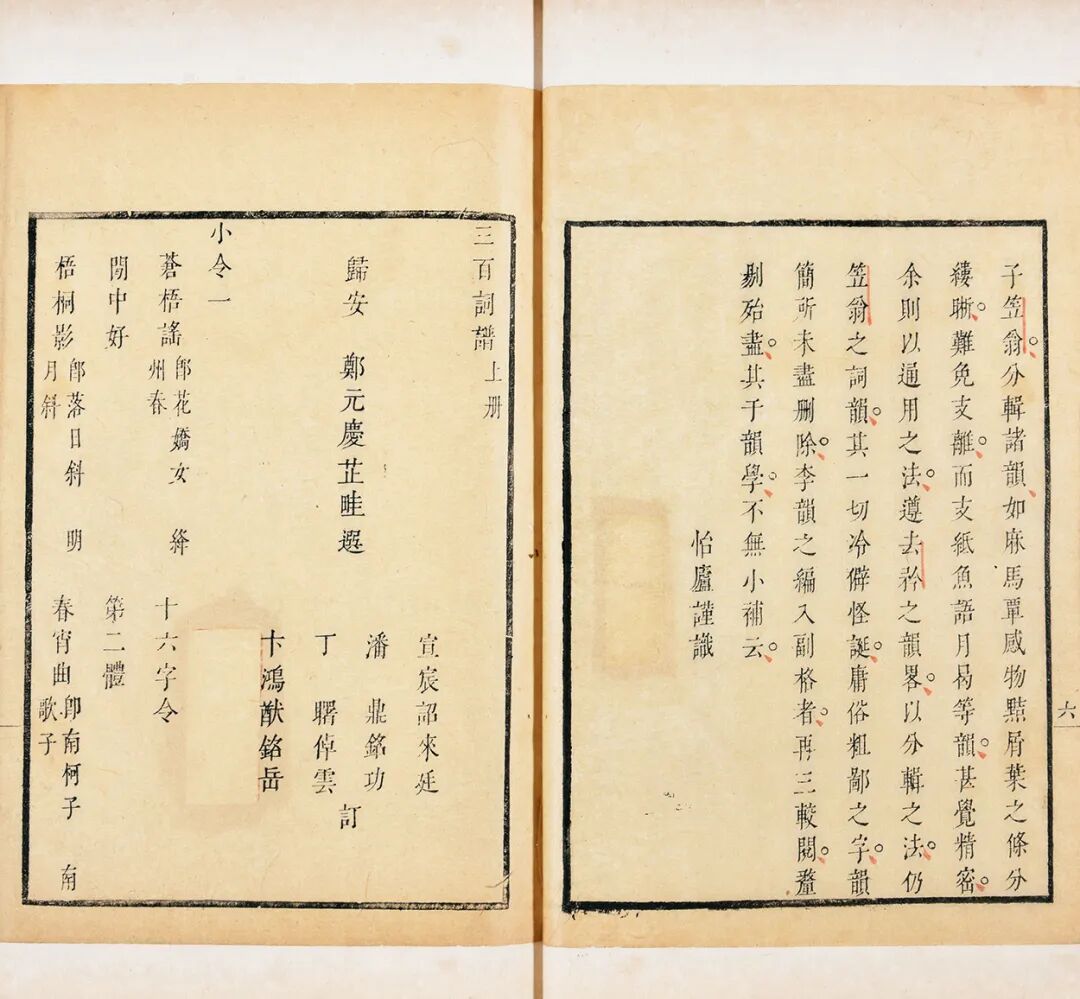 子笠翁分輯諸韻如麻馬覃感物點屑葉之條分
縷晰難免支離而支紙魚語月曷等韻甚覺精密
余則以通用之法遵去矜之韻畧以分輯之法仍
笠翁之詞韻其一切冷僻怪誕庸俗粗鄙之字韻
簡所未盡刪除李韻之編入副格者再三較閱釐
剔殆盡其于韻學不無小補云
怡廬謹識
六
三百詞譜上册
歸安 鄭元慶芷畦選
宣宸詔來廷
潘 鼎銘功
丁 曙倬雲 訂
卞鴻猷銘岳
小令一
蒼梧謠 即花嬌女 絳州春 十六字令
閒中好 第二體
梧桐影 即落日斜 明月斜 春宵曲 即南柯子 南歌子